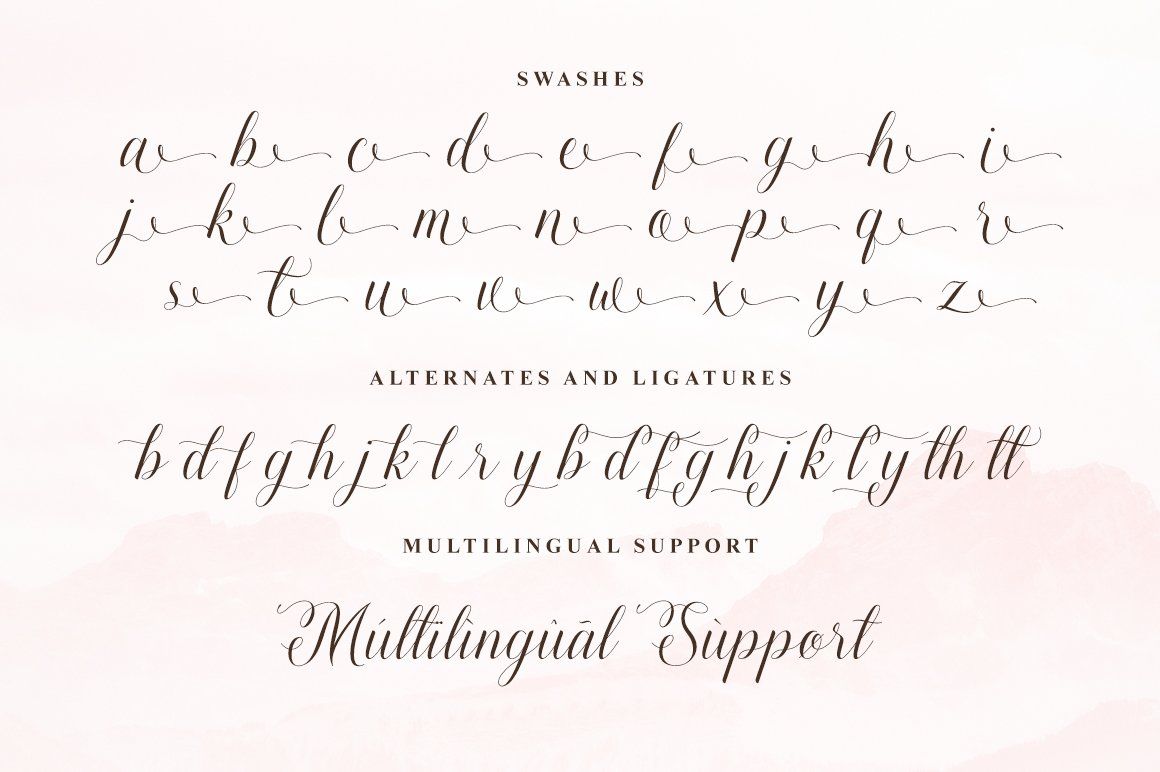 SWASHES
a b c d e f g h i
j k l m n o p q r
s t u v w x y z
ALTERNATES AND LIGATURES
b d f g h j k l r y b d f g h j k l y th tt
MULTILINGUAL SUPPORT
Múltïlìngûāl Sùpport